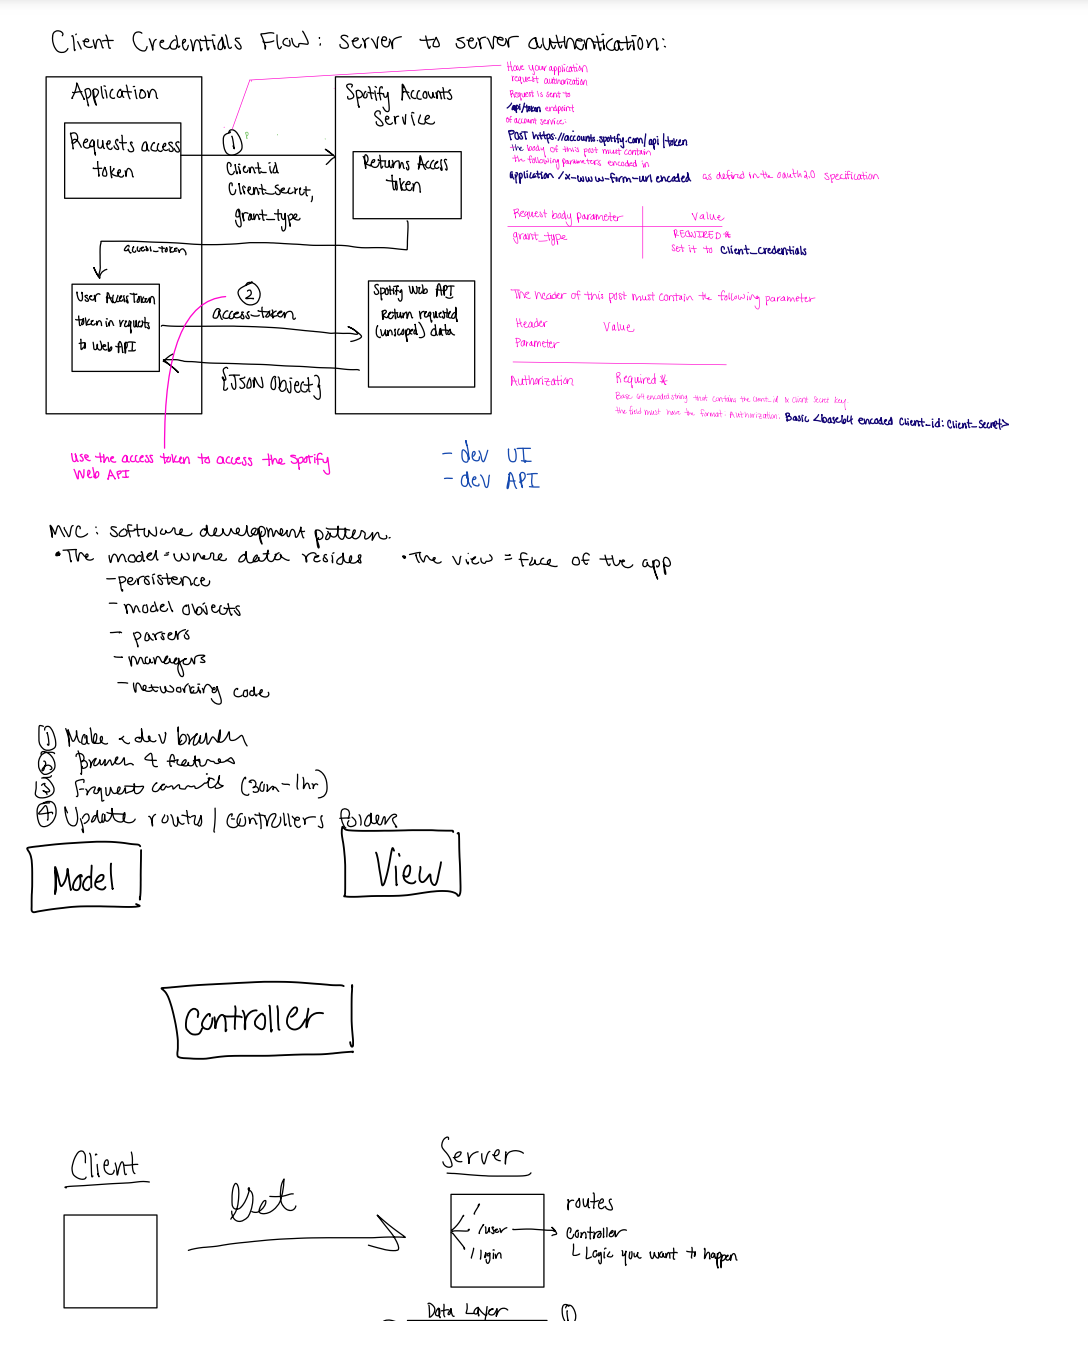 Client Credentials Flow: Server to server authentication:
Application
Requests access
token
1
Client_id
Client_Secret,
grant_type
Spotify Accounts
Service
Returns Access
token
access_token
User Access Token
token in requests
to Web API
2
access_token
{JSON Object}
Spotify Web API
Return requested
(unscoped) data
use the access token to access the Spotify
Web API
Have your application
request authorization
Request is sent to
/api/token endpoint
of account service:
POST https://accounts.spotify.com/api/token
the body of this post must contain
the following parameters encoded in
application/x-www-form-urlencoded as defined in the oauth2.0 specification
Request body parameter Value
grant_type REQUIRED*
Set it to client_credentials
The header of this post must contain the following parameter
Header Value
Parameter
Authorization Required*
Base 64 encoded string that contains the client_id & client secret key
the field must have the format: Authorization: Basic <base64 encoded Client_id:Client_Secret>
- dev UI
- dev API
MVC: software development pattern.
• The model = where data resides • The view = face of the app
- persistence
- model objects
- parsers
- managers
- networking code
1 Make a dev branch
2 Branch 4 features
3 Frquest commits (30m-1hr)
4 Update routes / controllers folders
Model
View
Controller
Client
Get
Server
/
/user
/login
routes
Controller
Logic you want to happen
Data Layer
1